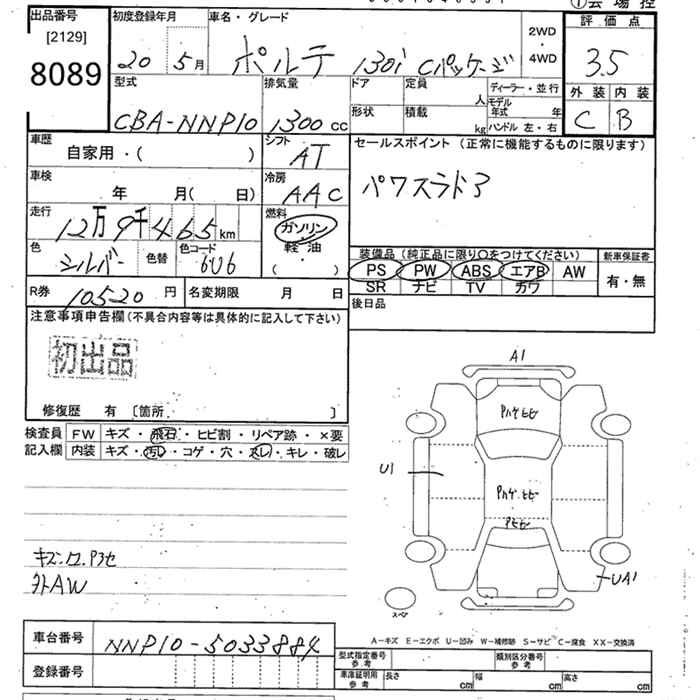 ①会場控
出品番号 初度登録年月 車名・グレード 2WD・4WD 評価点
[2129]
8089
20 5月 ポルテ 130i Cパッケージ 3.5
型式 排気量 ドア 定員 人 ディーラー・並行 外装 内装
形状 積載 kg モデル年式 年 ハンドル 左・右
CBA-NNP10 1300cc C B
車歴 シフト セールスポイント(正常に機能するものに限ります)
自家用・( ) AT
車検 冷房
年 月( 日) AAC パワスラドア
走行 燃料
12万9千465km ガソリン
色 色替 色コード 軽油
シルバー 6U6 ・( )
装備品(純品に限り○をつけてください) 新車保証書
PS PW ABS エアB AW 有・無
SR ナビ TV カワ
R券 10520円 名変期限 月 日 後日品
注意事項申告欄(不具合内容等は具体的に記入して下さい)
初出品
修復歴 有 [箇所 ]
検査員 FW キズ・飛石・ヒビ割・リペア跡・×要
記入欄 内装 キズ・汚レ・コゲ・穴・スレ・キレ・破レ
A1
U1
UA1
スペア
外AW
A-キズ E-エクボ U-凹み W-補修跡 S-サビ C-腐食 XX-交換済
車台番号 NNP10-5033884
登録番号
型式指定番号 参考 類別区分番号 参考
車庫証明用 参考 長さ cm 幅 cm 高さ cm